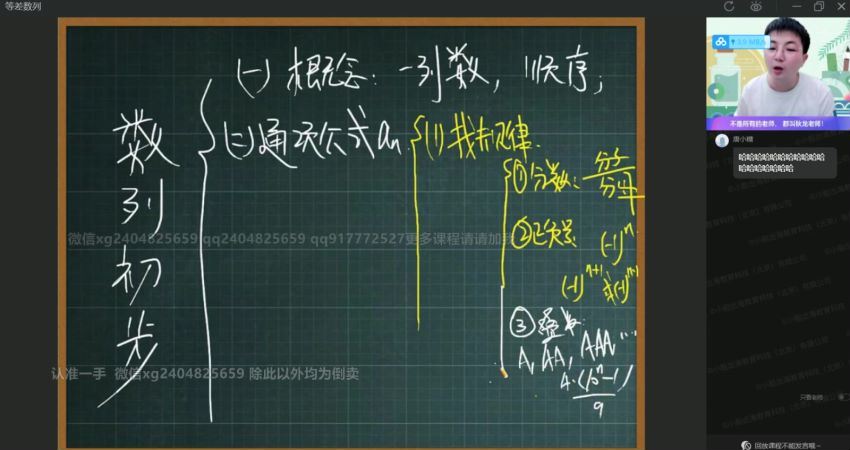 等差数列
3.9 MB/s
(一) 概念: 一列数, 顺序;
数列初步
(二) 通项公式 an
(1) 找规律.
① 分数: 分子/分母
② 正负号: (-1)^n
(-1)^{n+1} 或 (-1)^{n-1}
③ 叠数:
A, AA, AAA, ...
A·(10^n-1)/9
微信xg2404825659 qq2404825659 qq917772527更多课程请请加我
认准一手 微信xg2404825659 除此以外均为倒卖
不是所有的老师,都叫狄龙老师!
唐小糖
哈哈哈哈哈哈哈哈哈哈哈
哈哈哈哈哈哈哈
只看老师
回放课程不能发言哦~